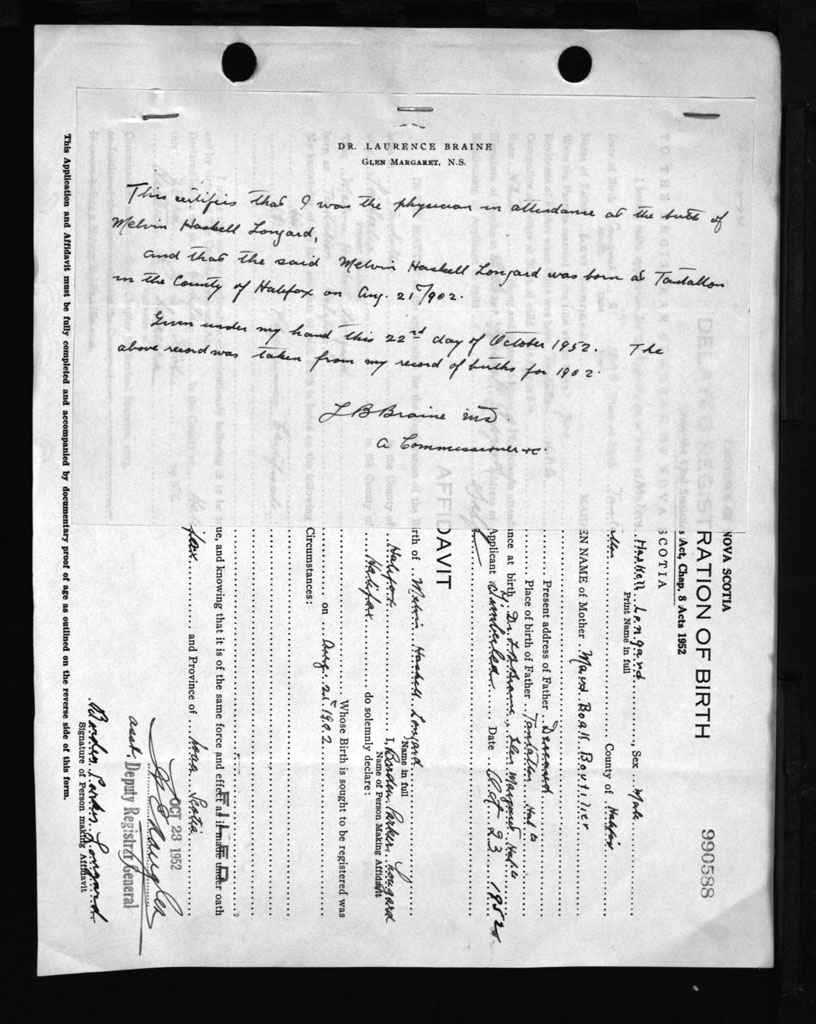 DR. LAURENCE BRAINE
GLEN MARGARET, N.S.
This certifies that I was the physician in attendance at the birth of
Melvin Haskell Longard,
and that the said Melvin Haskell Longard was born at Tantallon
in the County of Halifax on Aug. 21st/902.
Given under my hand this 22nd day of October 1952. The
above record was taken from my record of births for 1902.
L B Braine MD
A Commissioner &c.
NOVA SCOTIA
RATION OF BIRTH
990588
Act, Chap. 8 Acts 1952
SCOTIA
Haskell Longard Sex Male
Print Name in full
County of Halifax
EN NAME of Mother Maud Beall Boutilier
Present address of Father Deceased
Place of birth of Father Tantallon Hx Co
nce at birth Dr L B Braine, Glen Margaret Hx Co
Applicant Timberlea Date Oct 23 1952
AFFIDAVIT
irth of Melvin Haskell Longard
Name in full
I, Borden Parker Longard
Name of Person Making Affidavit
Halifax
Halifax do solemnly declare:
Whose Birth is sought to be registered was
on Aug. 21st 1902
Circumstances:
ue, and knowing that it is of the same force and effect as if made under oath
FILED
and Province of Nova Scotia
OCT 29 1952
asst. Deputy Registrar General
Borden Parker Longard
Signature of Person making Affidavit
This Application and Affidavit must be fully completed and accompanied by documentary proof of age as outlined on the reverse side of this form.